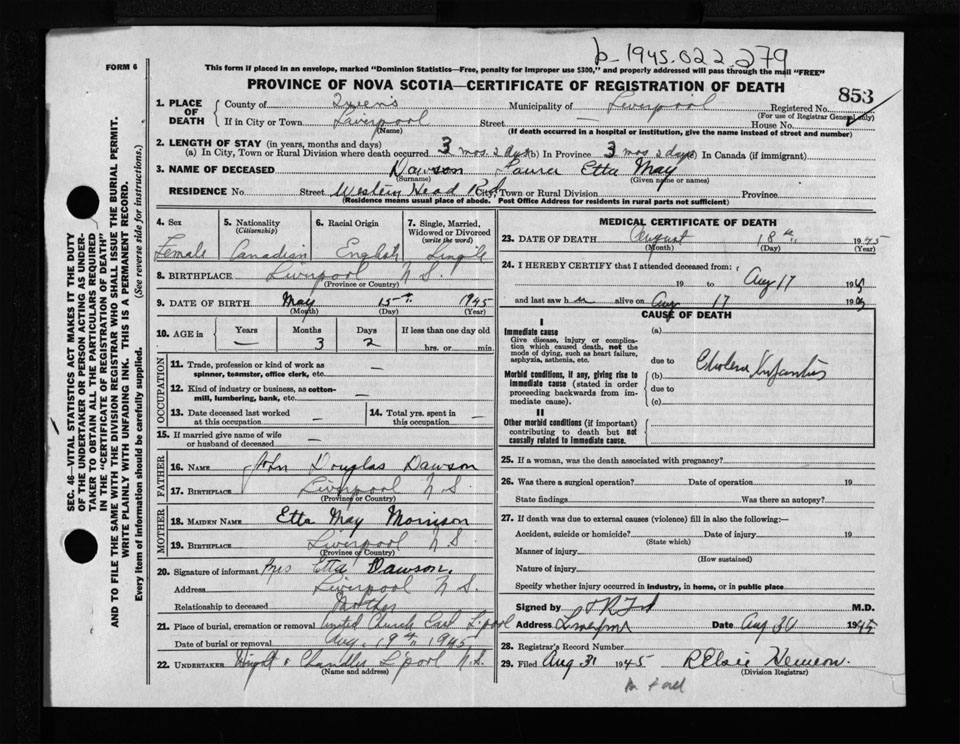 b-1945.022-279
FORM 6
This form if placed in an envelope, marked "Dominion Statistics—Free, penalty for improper use $300," and properly addressed will pass through the mail "FREE"
PROVINCE OF NOVA SCOTIA—CERTIFICATE OF REGISTRATION OF DEATH
853
1. PLACE OF DEATH
County of Queens Municipality of Liverpool Registered No.
(For use of Registrar General only)
If in City or Town Liverpool Street — House No.
(Name) (If death occurred in a hospital or institution, give the name instead of street and number)
2. LENGTH OF STAY (in years, months and days)
(a) In City, Town or Rural Division where death occurred 3 mos. 2 days (b) In Province 3 mos 2 days (c) In Canada (if immigrant)
3. NAME OF DECEASED Dawson Laura Etta May
(Surname) (Given name or names)
RESIDENCE No. Street Western Head Rd City, Town or Rural Division Province
(Residence means usual place of abode. Post Office Address for residents in rural parts not sufficient)
4. Sex 5. Nationality (Citizenship) 6. Racial Origin 7. Single, Married, Widowed or Divorced (write the word)
Female Canadian English Single
8. BIRTHPLACE Liverpool N S
(Province or Country)
9. DATE OF BIRTH May 15th 1945
(Month) (Day) (Year)
10. AGE in Years Months Days If less than one day old
— 3 2 hrs. or min.
OCCUPATION
11. Trade, profession or kind of work as spinner, teamster, office clerk, etc. —
12. Kind of industry or business, as cotton-mill, lumbering, bank, etc. —
13. Date deceased last worked at this occupation — 14. Total yrs. spent in this occupation —
15. If married give name of wife or husband of deceased —
FATHER
16. NAME John Douglas Dawson
17. BIRTHPLACE Liverpool N S.
(Province or Country)
MOTHER
18. MAIDEN NAME Etta May Morrison
19. BIRTHPLACE Liverpool N S
(Province or Country)
20. Signature of informant Mrs Etta Dawson.
Address Liverpool N S.
Relationship to deceased Mother
21. Place of burial, cremation or removal United Church Cem L'pool
Date of burial or removal Aug. 19th 1945
22. UNDERTAKER Wright & Chandler L'pool N.S.
(Name and address)
MEDICAL CERTIFICATE OF DEATH
23. DATE OF DEATH August 18th 1945
(Month) (Day) (Year)
24. I HEREBY CERTIFY that I attended deceased from:
19 to Aug 17 1945
and last saw her alive on Aug 17 1945
CAUSE OF DEATH
I
Immediate cause
Give disease, injury or complication which caused death, not the mode of dying, such as heart failure, asphyxia, asthenia, etc.
(a)
due to
Morbid conditions, if any, giving rise to immediate cause (stated in order proceeding backwards from immediate cause).
(b) Cholera Infantis
due to
(c)
II
Other morbid conditions (if important) contributing to death but not causally related to immediate cause.
25. If a woman, was the death associated with pregnancy?
26. Was there a surgical operation? Date of operation 19
State findings Was there an autopsy?
27. If death was due to external causes (violence) fill in also the following:—
Accident, suicide or homicide? Date of injury 19
(State which)
Manner of injury
(How sustained)
Nature of injury
Specify whether injury occurred in industry, in home, or in public place
Signed by M.D.
Address Liverpool Date Aug 30 1945
28. Registrar's Record Number
29. Filed Aug 31 1945
(Division Registrar)
SEC. 46—VITAL STATISTICS ACT MAKES IT THE DUTY
OF THE UNDERTAKER OR PERSON ACTING AS UNDER-
TAKER TO OBTAIN ALL THE PARTICULARS REQUIRED
IN THE "CERTIFICATE OF REGISTRATION OF DEATH"
AND TO FILE THE SAME WITH THE DIVISION REGISTRAR WHO SHALL ISSUE THE BURIAL PERMIT.
WRITE PLAINLY WITH UNFADING INK. THIS IS A PERMANENT RECORD.
Every item of information should be carefully supplied. (See reverse side for instructions.)